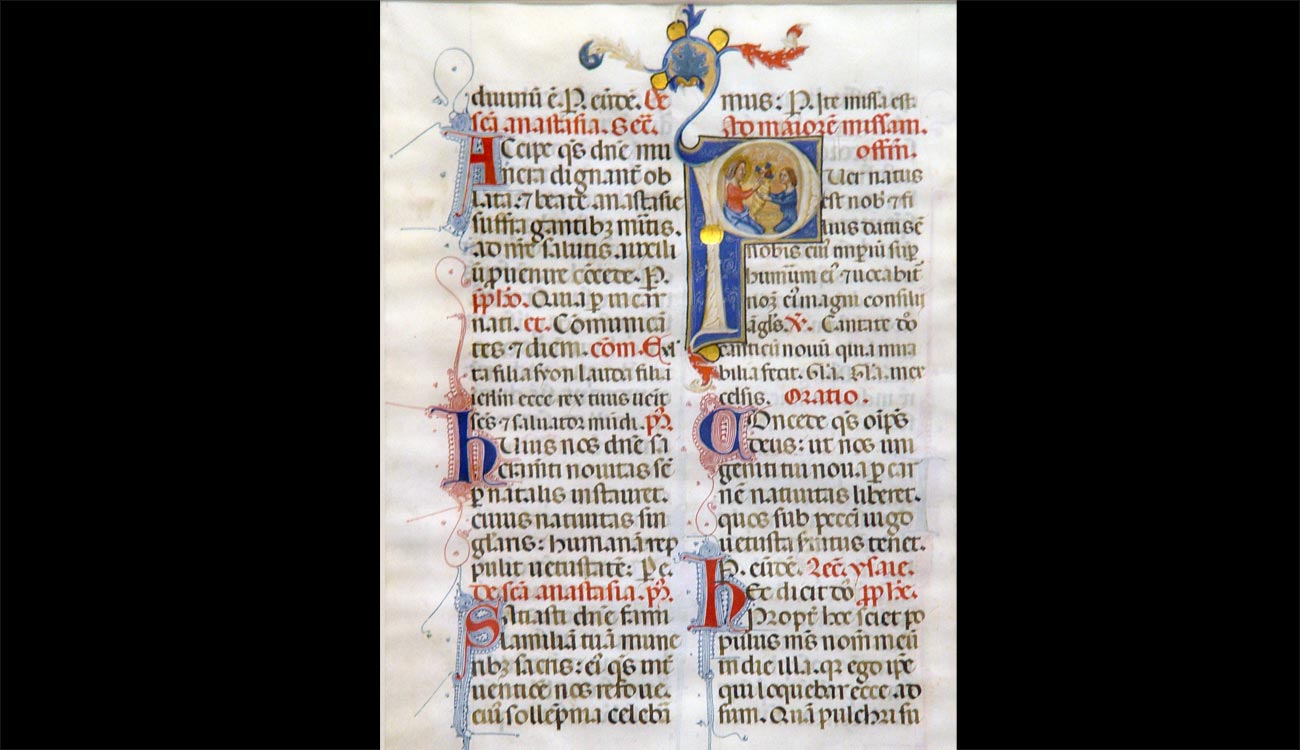 diuinū ē. P. eūdē. De
scā anastasia. Secr̄.
ACcipe qs̄ dn̄e mu
nera dignant̄ ob
lata: ⁊ beate anastasie
suffragantibꝫ m̄itis.
ad nr̄e salutis auxili
ū ꝓuenire cōcede. P.
Quia p̄ incar
nati. et. Cōmunicā
tes ⁊ diem. cōm. Exl̄
ta filia syon lauda filia
ierlm̄ ecce rex tuus ueīt
scs̄ ⁊ saluator mūdi. p̄.
hUius nos dn̄e sa
crām̄ti nouitas sē
ꝑ natalis instauret.
cuius natiuitas sin
glaris: humanā rep
pulit uetustatē: Pe.
De scā anastasia. p̄.
SAtiasti dn̄e fami
liam ⁊ā tuā mune
ribꝫ sacris: eī qs̄ int̄
uentiōe nos refoue.
cui᷒ sollēpnia celebā
mus: P. Ite missa est.
Ad maiorē missam.
offm̄.
PUer natus
est nob᷒ ⁊ fi
lius datus ē
nobis cui᷒ imperiū suꝑ
humerum ei᷒ ⁊ uocabit̄
noꝫ ei᷒ magni consilii
āgls̄. V. Cantate dō
canticū nouū quia mira
bilia fecit. Gl̄a. Gl̄a. in ex
celsis. Oratio.
COncede qs̄ oīps̄
deus: ut nos uni
geniti tui noua ꝑ car
nē natiuitas liberet.
quos sub peccī iugo
uetusta seruitus tenet.
P. eūdē. Lec̄. ysaie.
hEc dicit dō pp̄he.
Propt̄ hoc sciet po
pulus ms̄ nom̄ meū
in die illa. qꝛ ego ip̄e
qui loquebar ecce ad
sum. Quā pulchri su